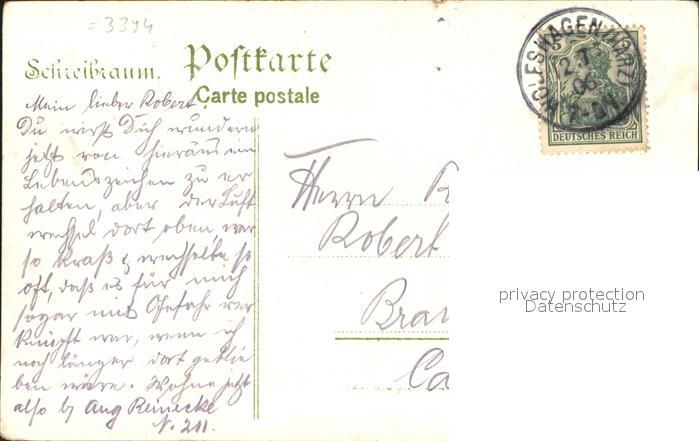 =3394
Schreibraum. Postkarte
Carte postale
Mein lieber Robert!
Du wirst Dich wundern
jetzt von hieraus ein
Lebenszeichen zu er
halten, aber der Luft
wechsel dort oben, war
so kraß & wechselte so
oft, daß es für mich
sogar mit Gefahr ver
knüpft war, wenn ich
noch länger dort geblie
ben wäre. Wohne jetzt
also by Aug Reinecke
No. 211.
Herrn
Robert
WOLFSHAGEN (HARZ)
2.7.
06
DEUTSCHES REICH
5
privacy protection
Datenschutz